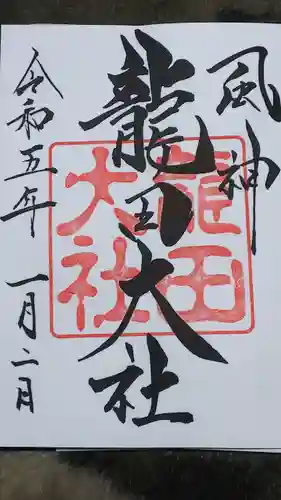 風神
龍田大社
令和五年 一月二日
龍田
大社